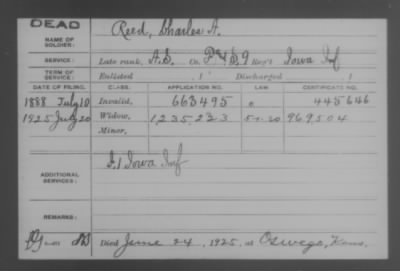 DEAD
NAME OF SOLDIER: Reed, Charles A.
SERVICE: Late rank, A.S. Co. Reg't Iowa Inf
TERM OF SERVICE: Enlisted , 1 Discharged , 1
DATE OF FILING. CLASS. APPLICATION NO. LAW CERTIFICATE NO.
1888 July 10 Invalid, 663495 445646
1925 July 20 Widow, 1235,223 5-1-20 969,504
Minor,
ADDITIONAL SERVICES: Iowa Inf
REMARKS:
Died June 24, 1925, at Oswego, Kans.